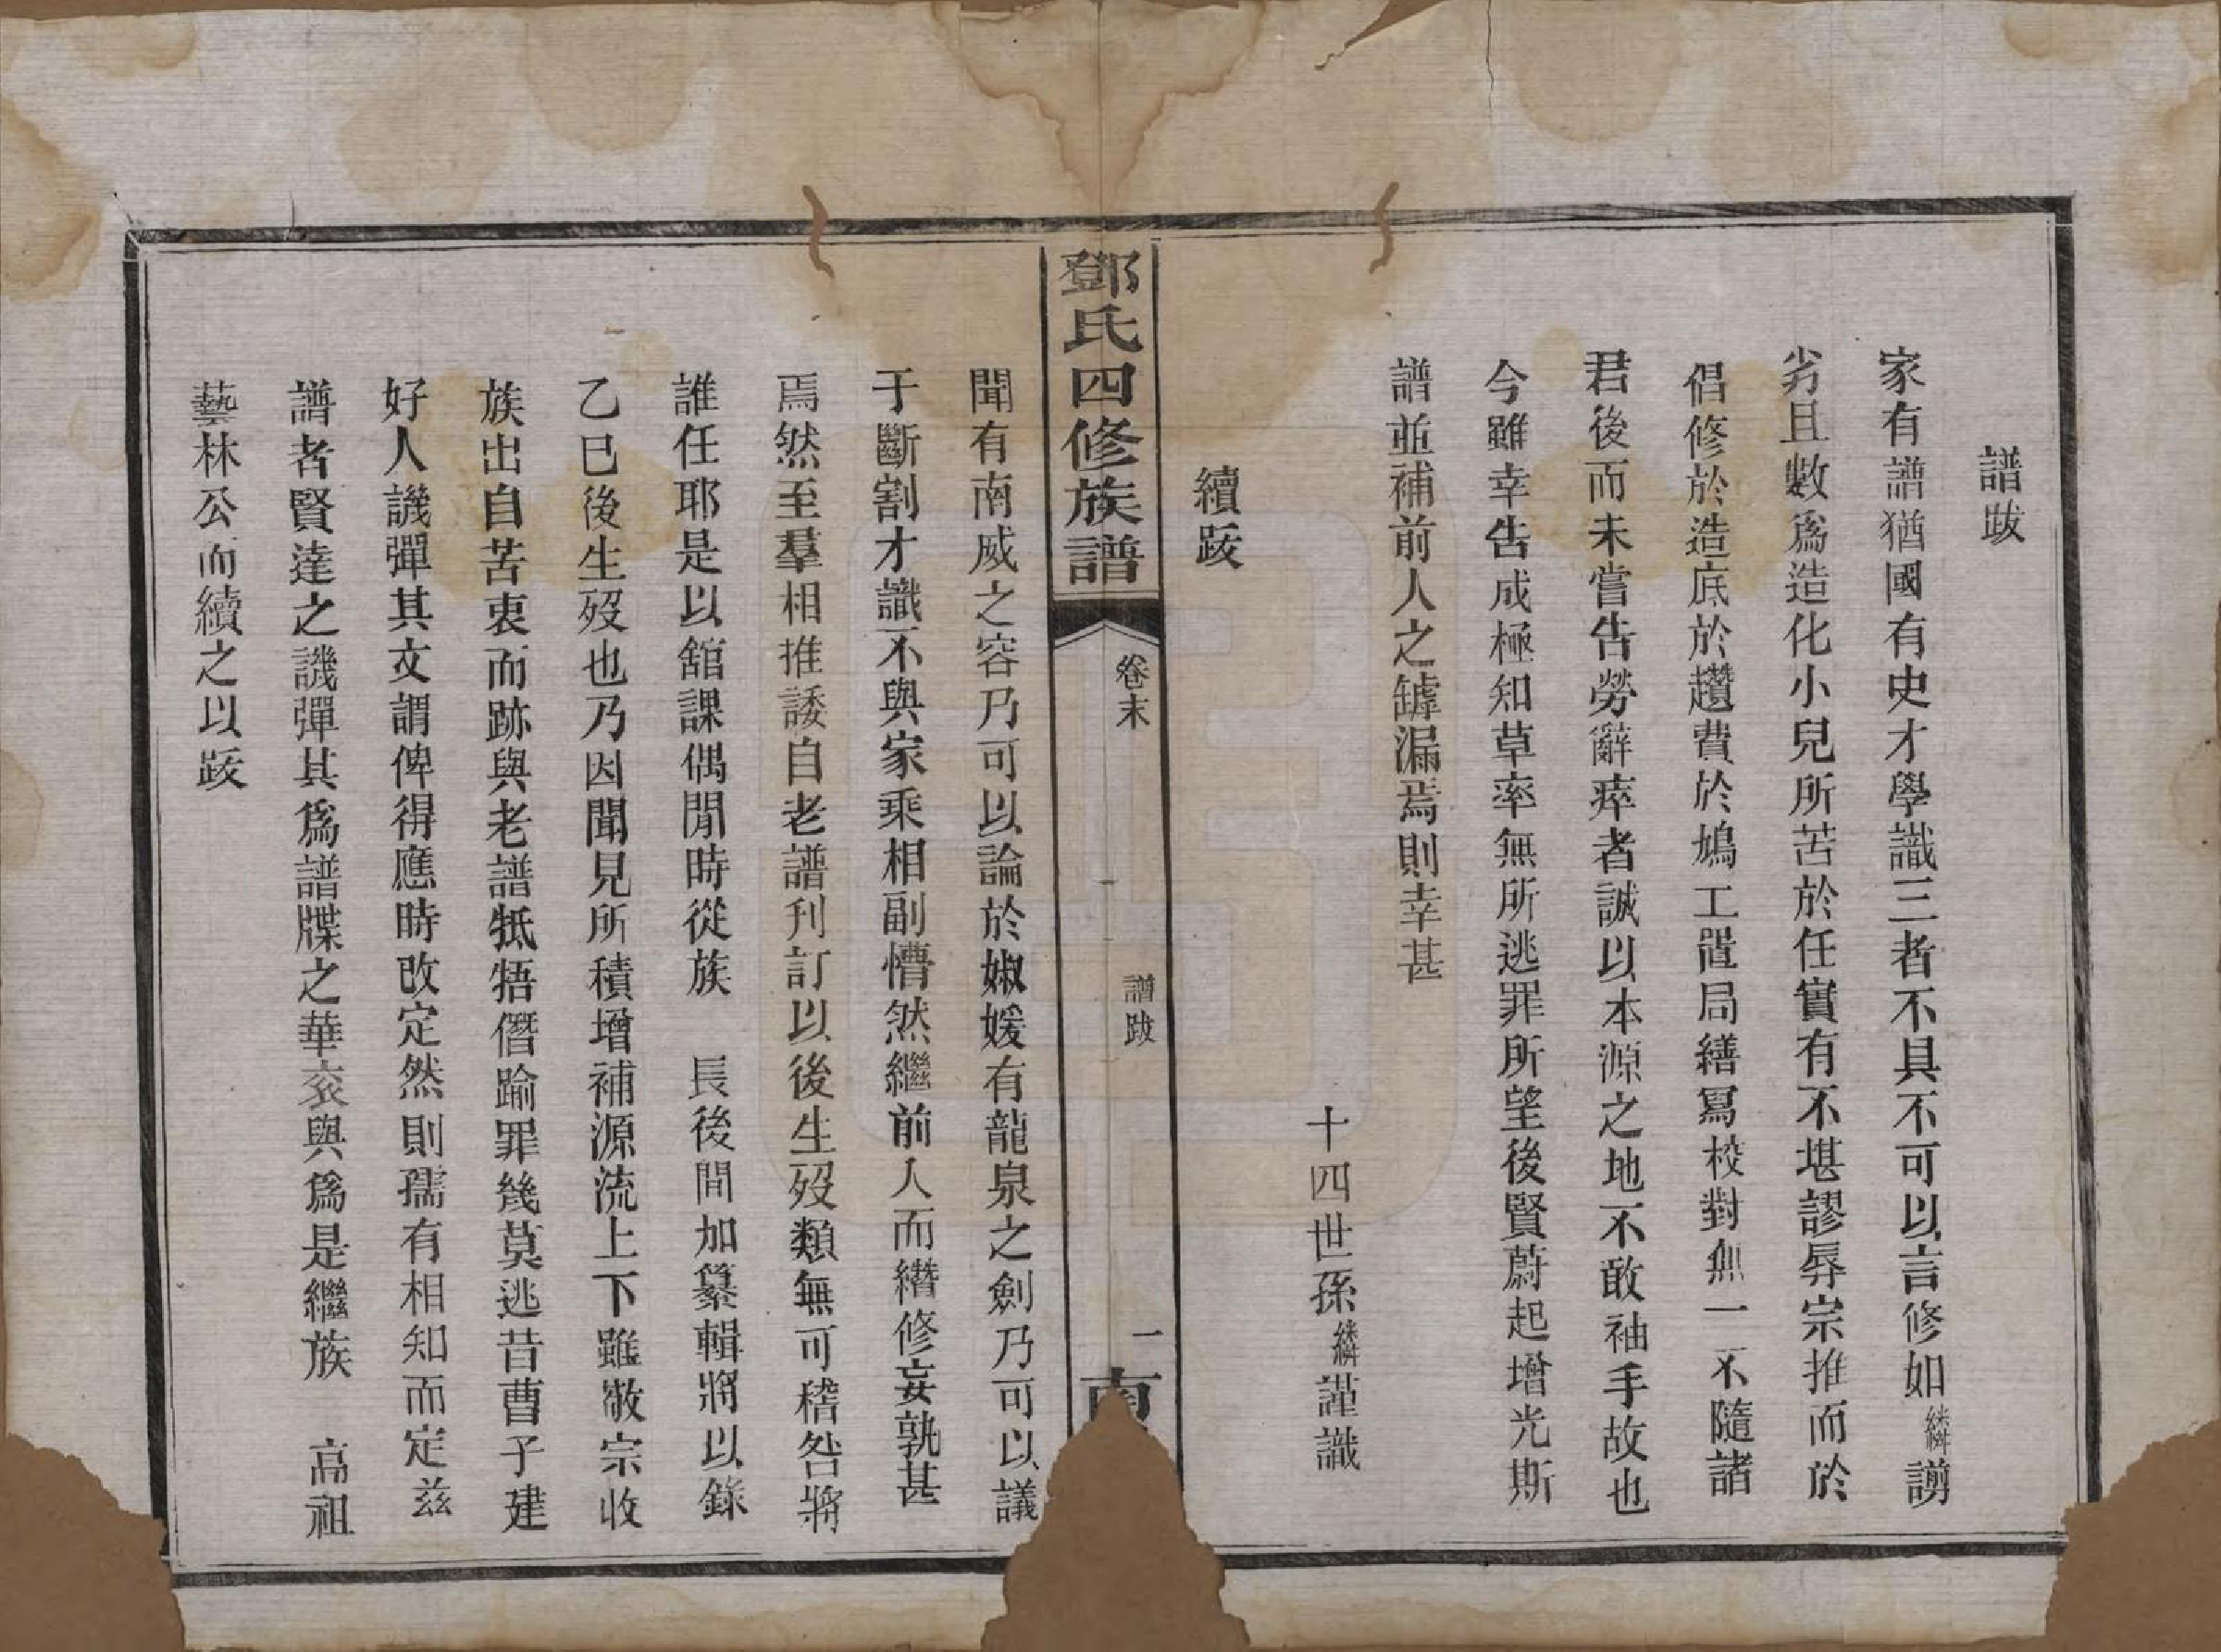 譜跋
家有譜猶國有史才學識三者不具不可以言修如繗謭
劣且數爲造化小兒所苦於任實有不堪謬辱宗推而於
倡修於造底於趲費於鳩工置局繕冩校對無一不隨諸
君後而未嘗告勞辭瘁者誠以本源之地不敢袖手故也
今雖幸告成極知草率無所逃罪所望後賢蔚起增光斯
譜並補前人之罅漏焉則幸甚
十四世孫繗謹識
續跋
鄧氏四修族譜
卷末
譜跋
一
聞有南威之容乃可以論於婌媛有龍泉之劍乃可以議
于斷割才識不與家乘相副懵然繼前人而纘修妄孰甚
焉然至羣相推諉自老譜刋訂以後生歿類無可稽咎將
誰任耶是以舘課偶閒時從族　長後間加纂輯將以錄
乙巳後生歿也乃因聞見所積增補源流上下雖敬宗收
族出自苦衷而跡與老譜牴牾僭踰罪幾莫逃昔曹子建
好人譏彈其文謂俾得應時改定然則孺有相知而定兹
譜者賢達之譏彈其爲譜牒之華衮與爲是繼族　高祖
藝林公而續之以跋